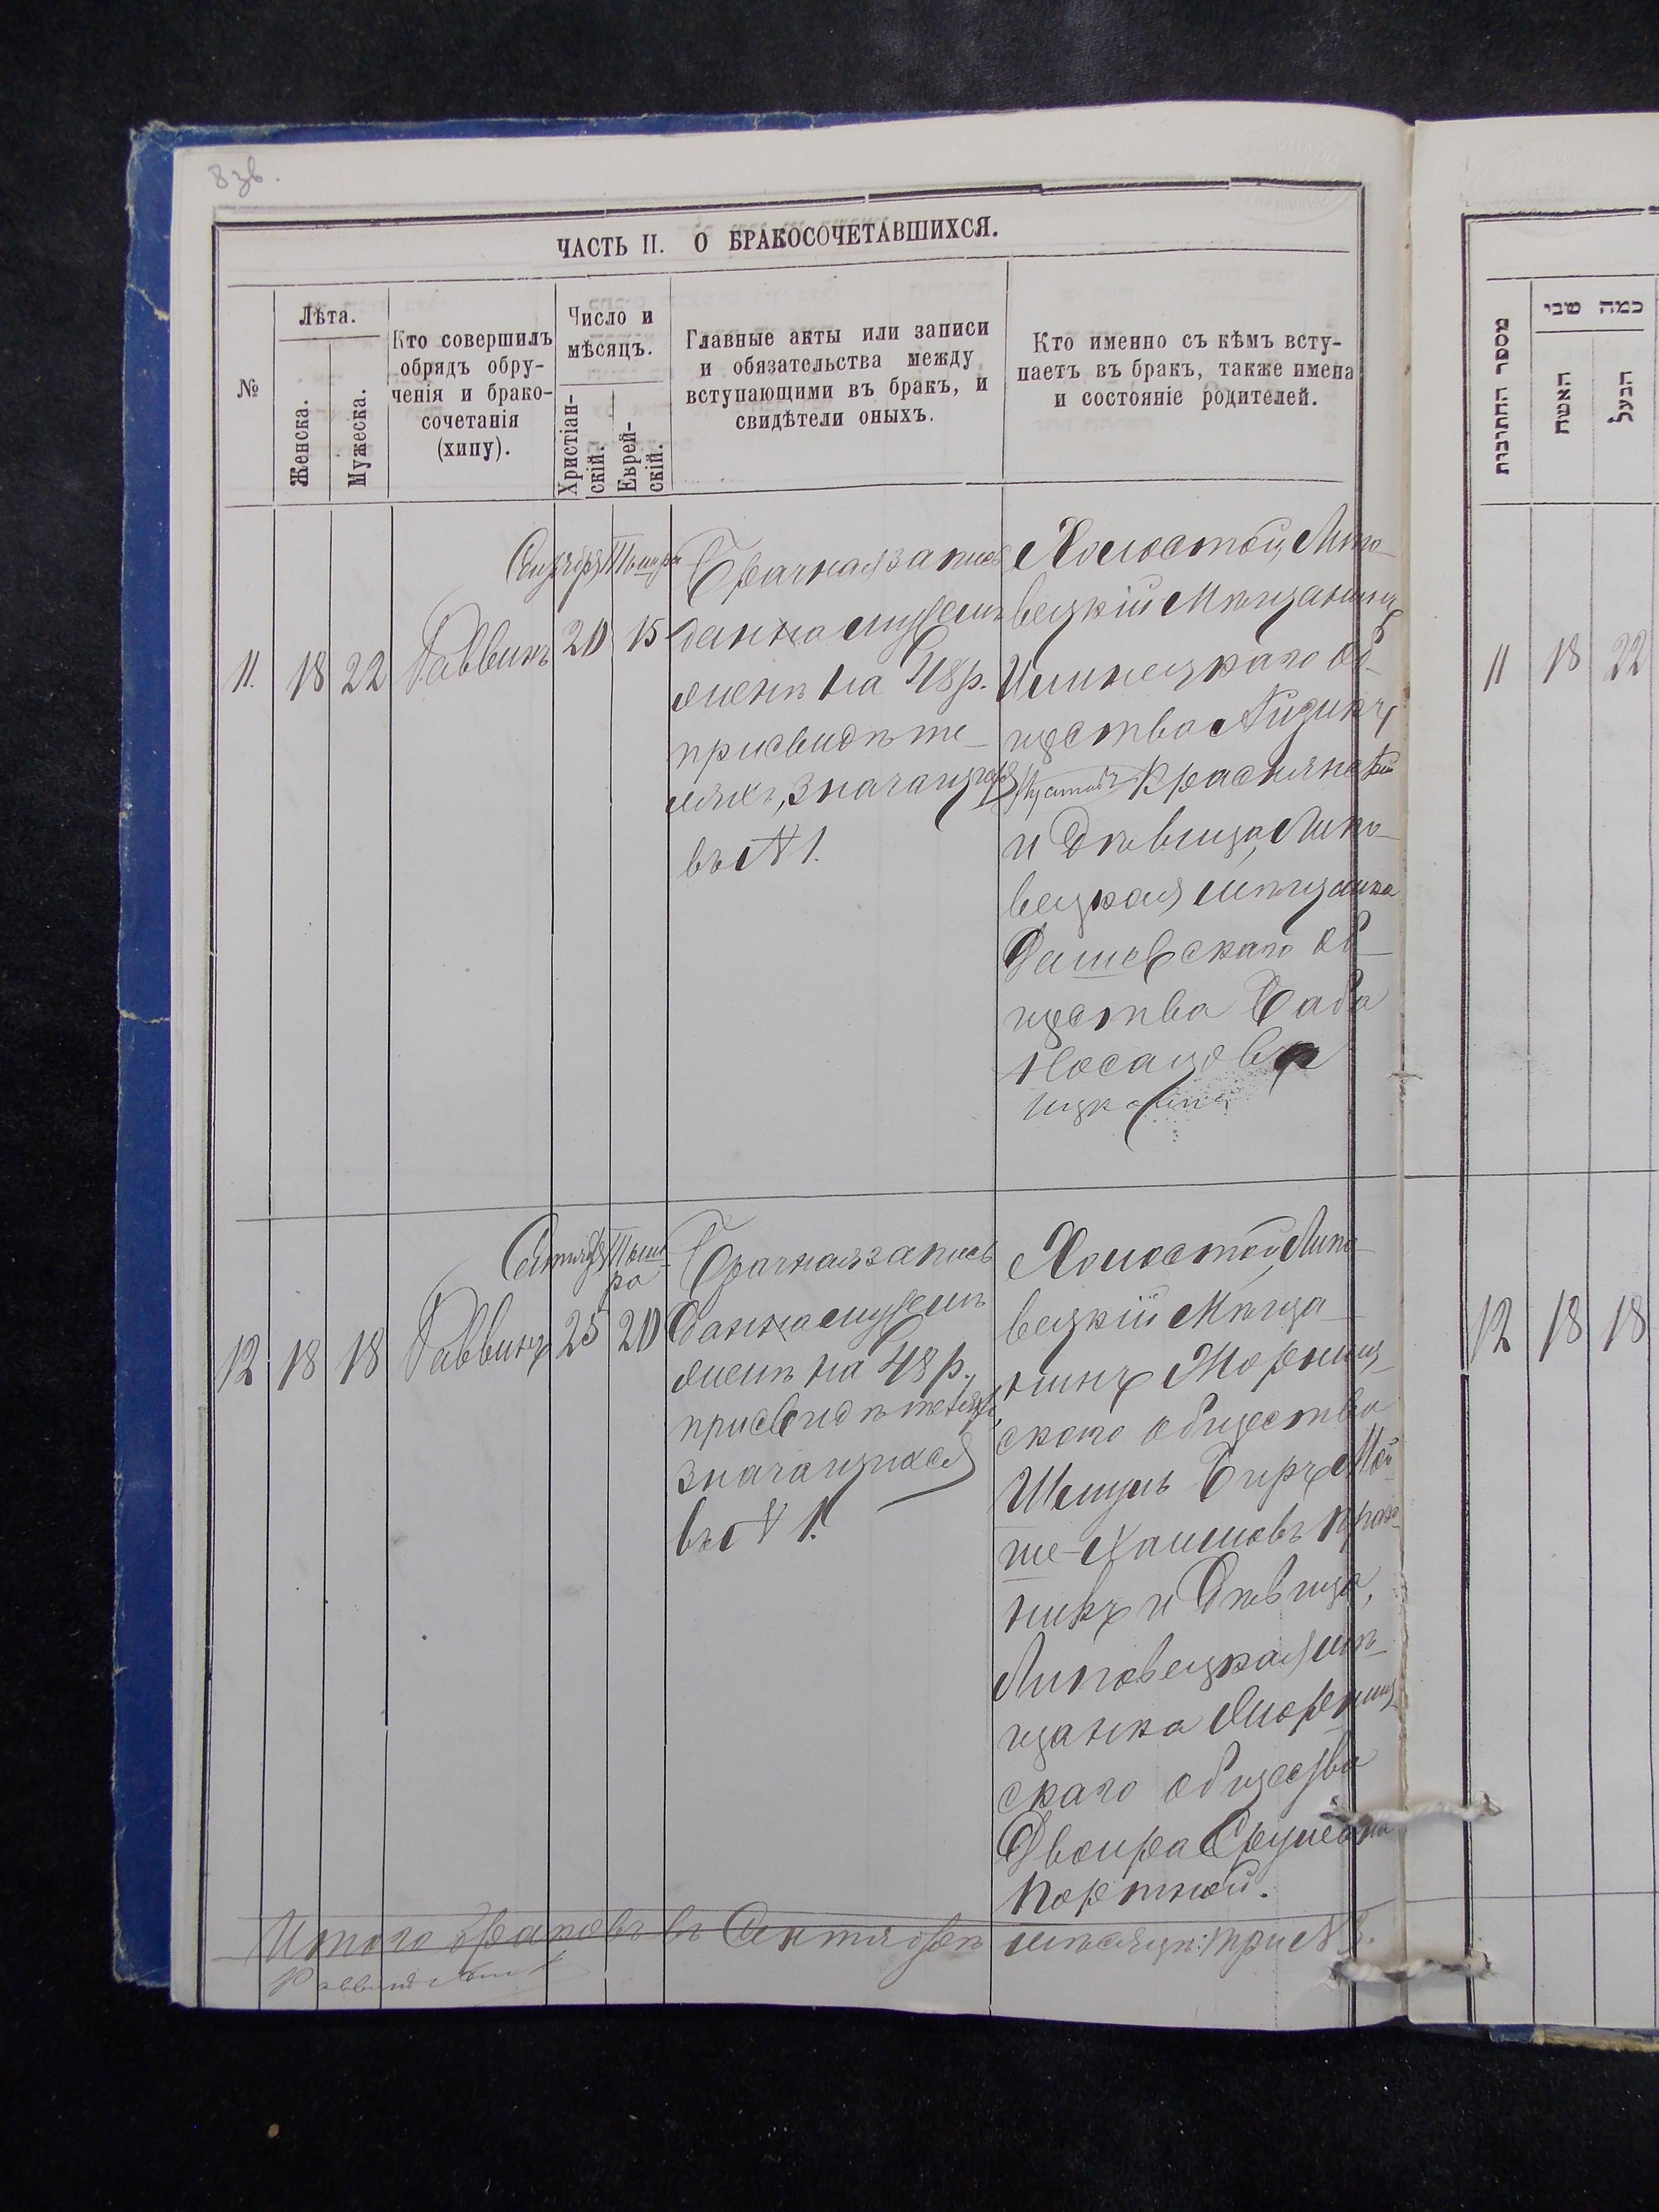 8 зв.
ЧАСТЬ II. О БРАКОСОЧЕТАВШИХСЯ.
№
Лѣта.
Женска.
Мужеска.
Кто совершилъ
обрядъ обру-
ченія и брако-
сочетанія
(хипу).
Число и
мѣсяцъ.
Христіан-
скій.
Еврей-
скій.
Главные акты или записи
и обязательства между
вступающими въ бракъ, и
свидѣтели оныхъ.
Кто именно съ кѣмъ всту-
паетъ въ бракъ, также имена
и состояніе родителей.
11. 18 22 Раввинъ
20 15
Брачная запись
данна мужемъ
женѣ на 48 р.
при свидѣте-
ляхъ, значащихся
въ № 1.
Холостой, Липо-
вецкій Мѣщанинъ
Илинецкаго об-
щества
Краснянскій
и Дѣвица, Липо-
вецкая мѣщанка
Дашевскаго об-
щества Баба
12 18 18 Раввинъ
Сентября Тыш-
ра
25 20
Брачная запись
данна мужемъ
женѣ на 48 р.,
при свидѣтеляхъ
значащихся
въ № 1.
Холостой Липо-
вецкій Мѣща-
нинъ Жорнищ-
скаго общества
Шмуль Беръ Мой-
ше-Хаимовъ
никъ и Дѣвица,
Липовецкая мѣ-
щанка Жорнищ-
скаго общества
Двойра Срулева
Портной.
Итого браковъ въ Сентябрѣ мѣсяцѣ: три № 3.
Раввинъ
מספר החתונות
כמה שני
האשה
הבעל
11 18 22
12 18 18